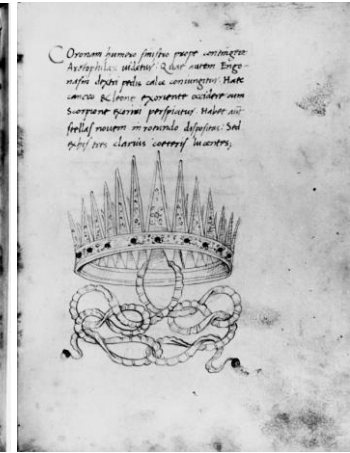 Coronam humero sinistro prope contingere
Artophilax uidetur. Quae autem Engo-
nasin dextri pedis calce coniungitur. Haec
cancro & leone exoriente occidere cum
Scorpione exoriri perspicitur. Habet aut
stellas nouem in rotundo dispositas. Sed
ex his tres clarius coeteris lucentes;